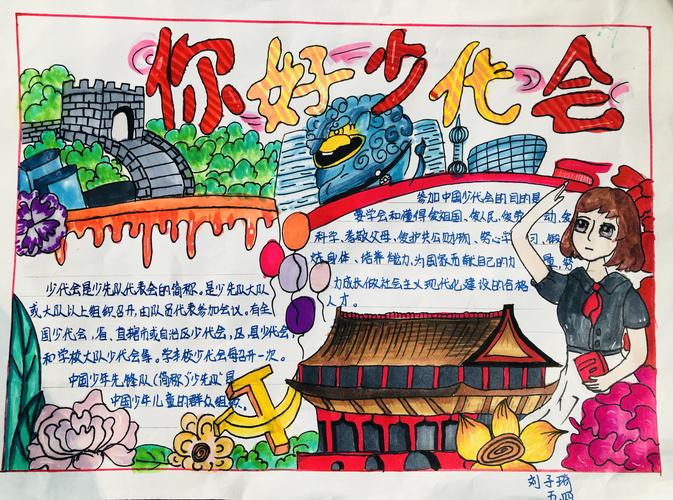 你好少代会
参加中国少代会的目的是
要学会和懂得爱祖国、爱人民、爱劳动、爱
科学、孝敬父母、爱护共公财物、努心学习、锻
炼自体、培养能力、为国家而献自己的力量，努
力成长做社会主义现代化建设的合格
人才。
少代会是少先队代表会的简称。是少先队大队
或大队以上组织召开，由队员代表参加会议。有全
国少代会，省、直辖市或自治区少代会，区、县少代会，
和学校大队少代会等。学校少代会每召开一次。
中国少年先锋队（简称“少先队”是
中国少年儿童的群众组织。
刘子琦
五四